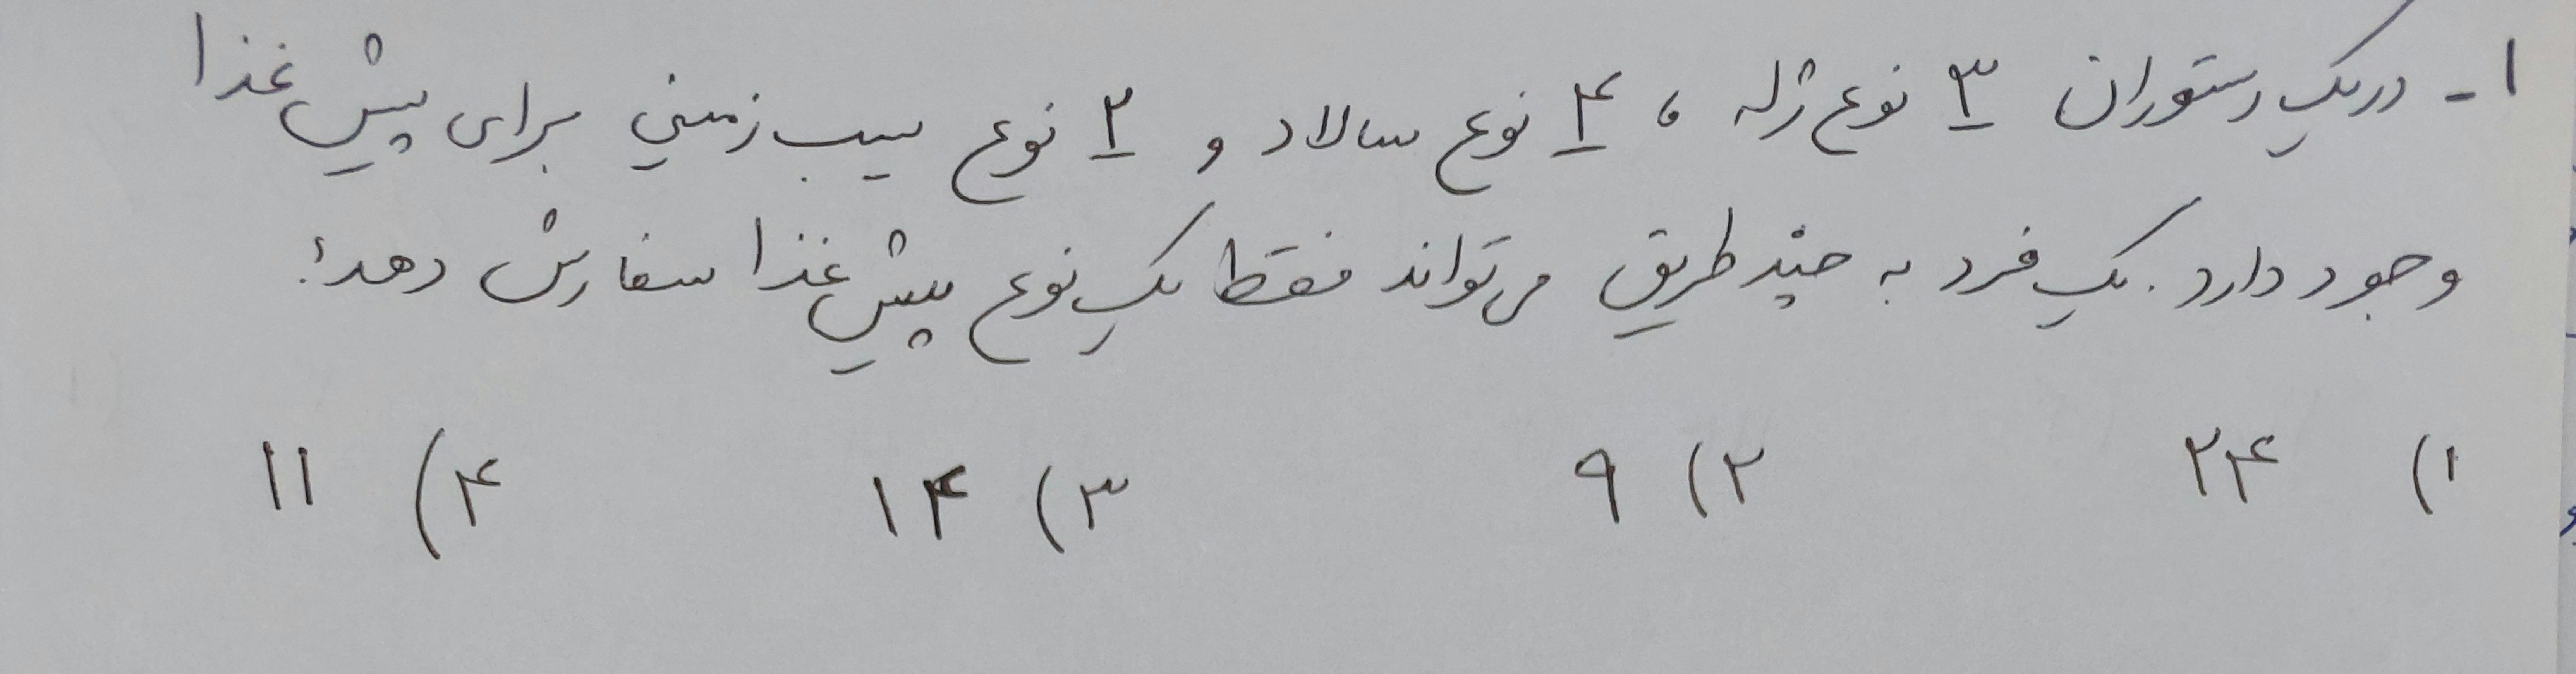 ۱- در یک رستوران ۳ نوع ژله ، ۴ نوع سالاد و ۲ نوع سیب زمینی برای پیش غذا
وجود دارد. یک فرد به چند طریق می‌تواند فقط یک نوع پیش غذا سفارش دهد؟
۱) ۲۴ ۲) ۹ ۳) ۱۴ ۴) ۱۱